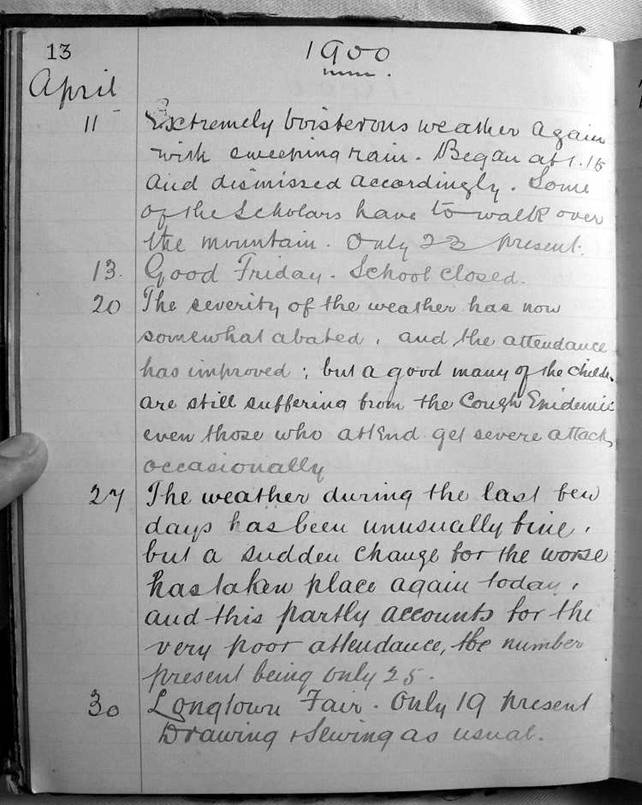 13
1900
April
11 Extremely boisterous weather again
with sweeping rain. Began at 1.15
and dismissed accordingly. Some
of the Scholars have to walk over
the mountain. Only 23 present.
13. Good Friday. School closed.
20 The severity of the weather has now
somewhat abated, and the attendance
has improved; but a good many of the childn.
are still suffering from the Cough Epidemic
even those who attend get severe attacks
occasionally
27 The weather during the last few
days has been unusually fine,
but a sudden change for the worse
has taken place again today,
and this partly accounts for the
very poor attendance, the number
present being only 25.
30 Longtown Fair. Only 19 present
Drawing & Sewing as usual.